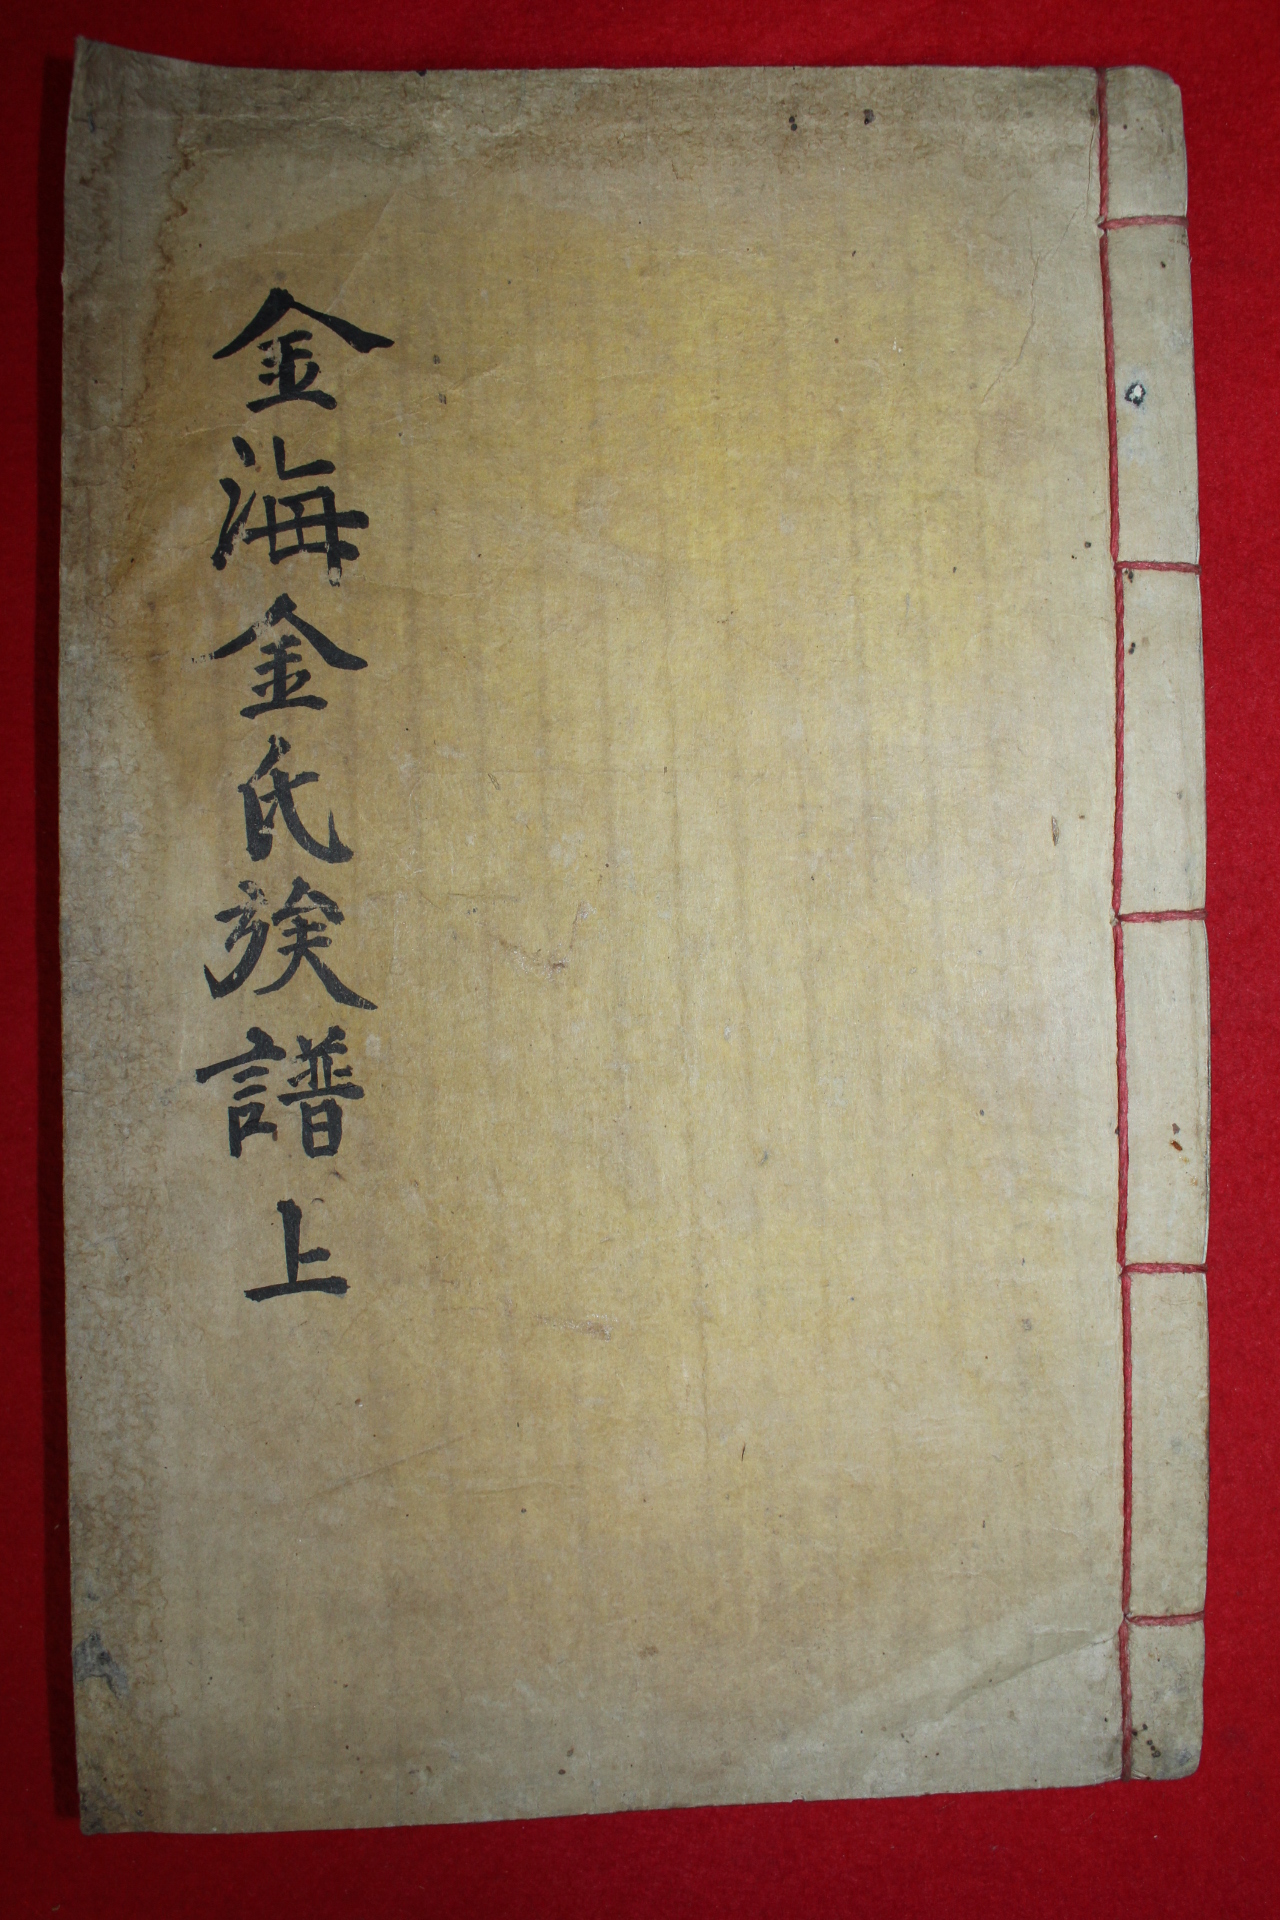 金海金氏族譜上